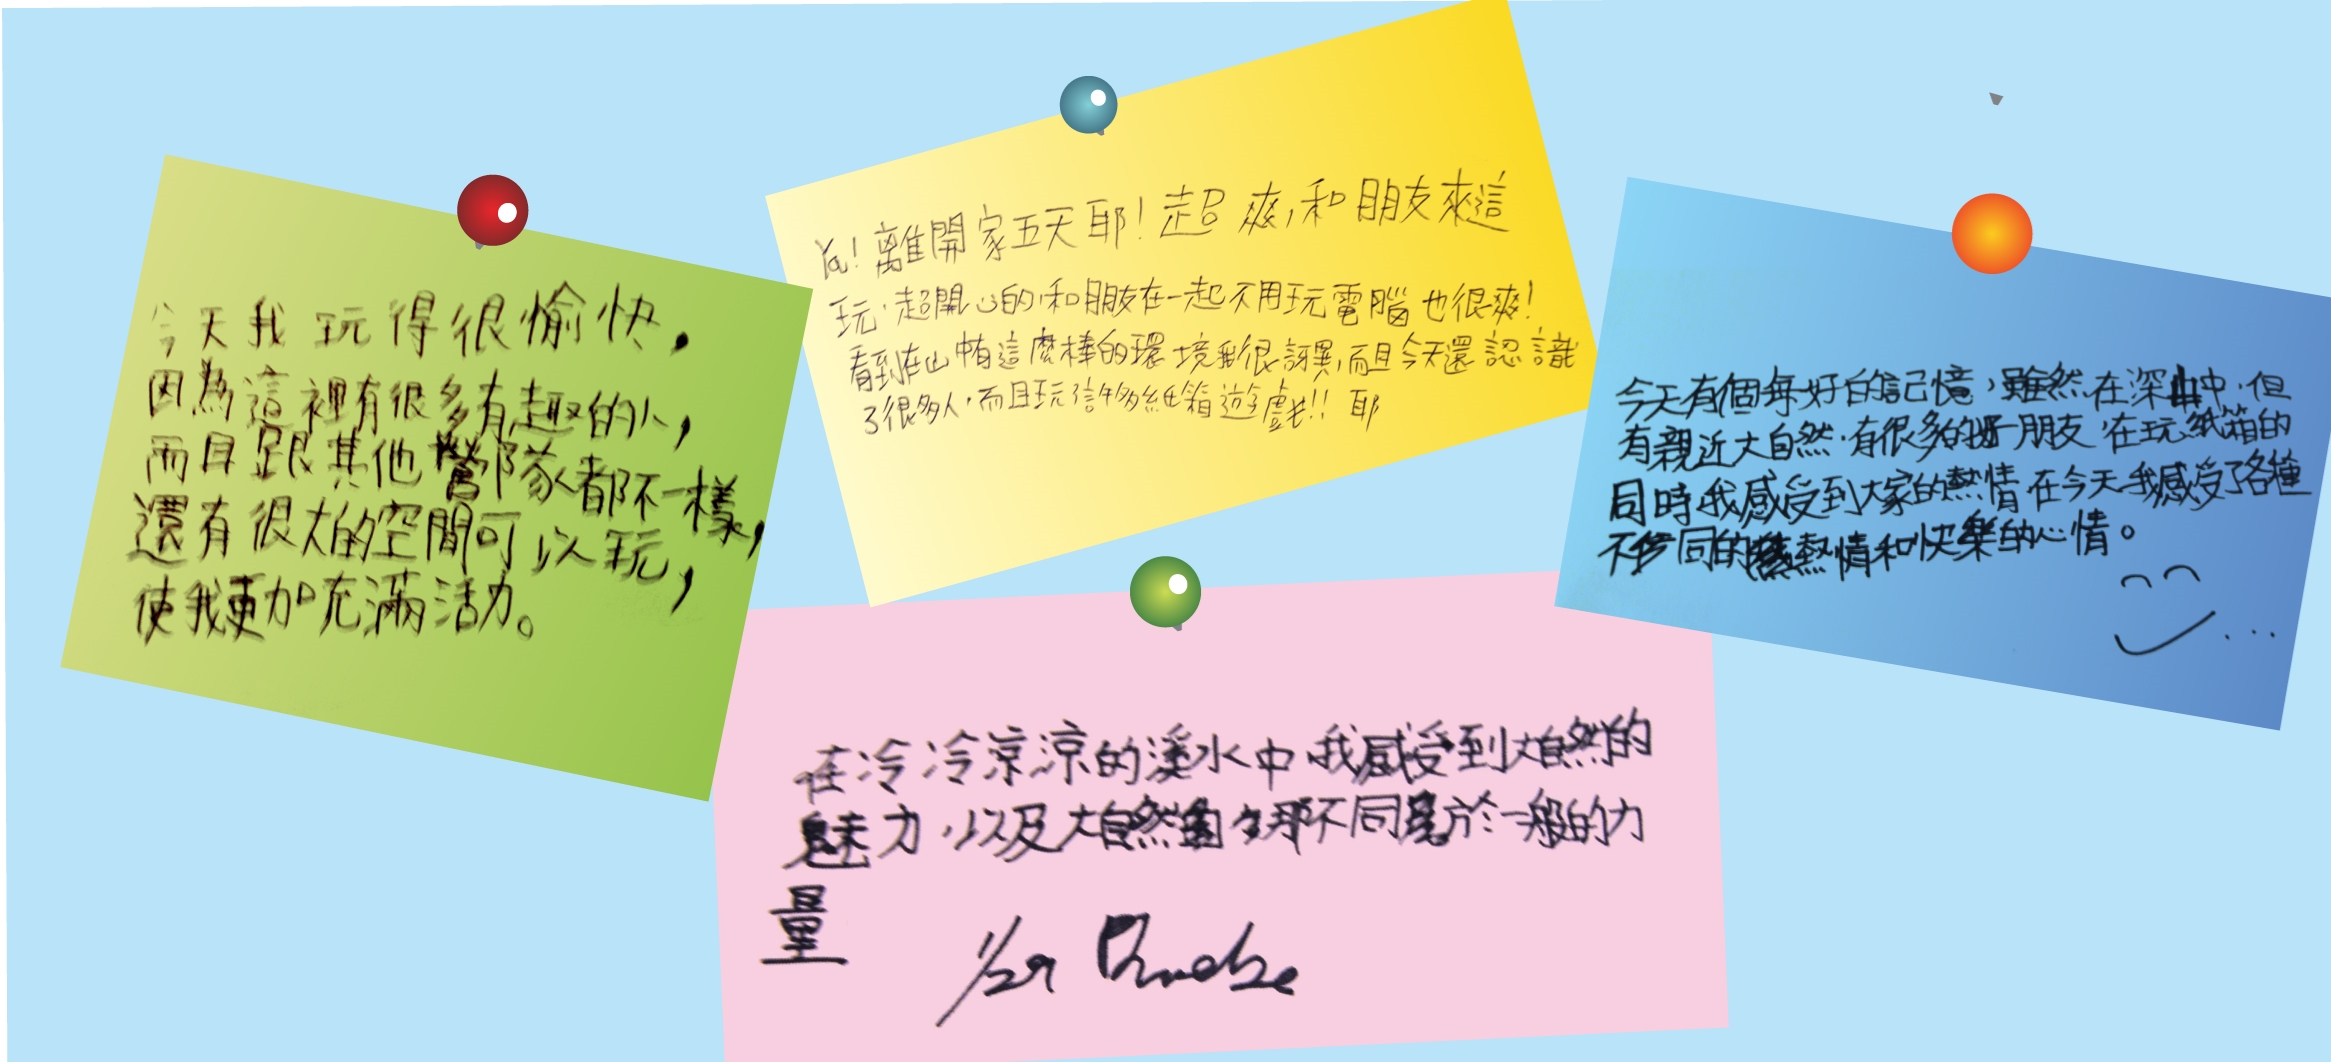 今天我玩得很愉快，
因為這裡有很多有趣的人，
而且跟其他營隊都不一樣，
還有很大的空間可以玩，
使我更加充滿活力。
Ya! 離開家五天耶! 超爽,和朋友來這
玩,超開心的,和朋友在一起不用玩電腦也很爽!
看到在山中有這麼棒的環境我很訝異,而且今天還認識
了很多人,而且玩許多紙箱遊戲!! 耶
今天有個每好的記憶,雖然在深山中,但
有親近大自然,有很多的好朋友,在玩紙箱的
同時,我感受到大家的熱情在今天我感受了各種
不同的熱情和快樂的心情。
...
在冷冷涼涼的溪水中,我感受到大自然的
魅力,以及大自然那不同於一般的力
量
1/29 Phoebe